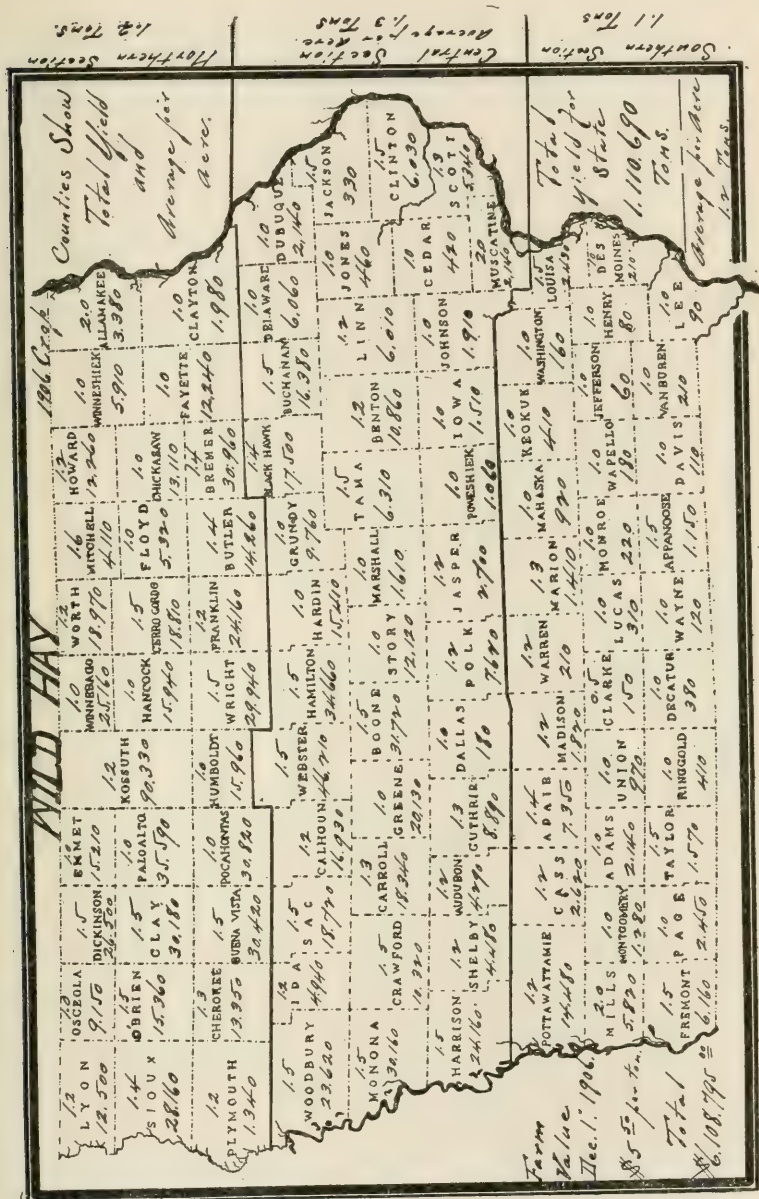 WILD HAY
1906 Crop
Counties Show
Total Yield
and
Average per
Acre.
Northern Section
1.2 Tons.
Central Section
Average per Acre.
1.3 Tons
Southern Section
1.1 Tons
1.2
LYON
12.500
1.3
OSCEOLA
9.150
1.5
DICKINSON
26.500
1.0
EMMET
15.210
1.2
KOSSUTH
90.330
1.0
WINNEBAGO
25.160
1.2
WORTH
18.970
1.6
MITCHELL
4.110
1.2
HOWARD
12.260
1.0
WINNESHIEK
5.910
2.0
ALLAMAKEE
3.380
1.4
SIOUX
28.160
1.5
OBRIEN
15.360
1.5
CLAY
30.180
1.0
PALO ALTO
35.590
1.0
HANCOCK
15.940
1.5
CERRO GORDO
18.810
1.0
FLOYD
5.320
1.0
CHICKASAW
13.110
1.0
FAYETTE
12,240
1.0
CLAYTON
1.980
1.2
PLYMOUTH
1.340
1.3
CHEROKEE
13.350
BUENA VISTA
30.420
1.0
POCAHONTAS
30.820
1.0
HUMBOLDT
15.960
1.5
WRIGHT
29.940
1.2
FRANKLIN
24.160
1.4
BUTLER
14.260
1.4
BREMER
30.960
1.5
WOODBURY
23.620
1.2
IDA
4.940
1.5
SAC
18.720
1.2
CALHOUN
16.930
1.5
WEBSTER
46.210
1.5
HAMILTON
34.660
1.0
HARDIN
15.210
1.0
GRUNDY
9.760
1.4
BLACK HAWK
17.500
1.5
BUCHANAN
16.380
1.0
DELAWARE
6.060
1.0
DUBUQUE
2,140
1.5
MONONA
30.160
1.5
CRAWFORD
10.320
1.3
CARROLL
18.340
1.0
GREENE
20.130
1.5
BOONE
31.720
1.0
STORY
12.120
1.0
MARSHALL
1.610
1.5
TAMA
6.310
1.2
BENTON
10.860
1.2
LINN
6.010
1.0
JONES
460
1.5
JACKSON
330
1.5
CLINTON
6.030
1.5
HARRISON
24.160
1.2
SHELBY
4.480
1.2
AUDUBON
4.290
1.3
GUTHRIE
8.890
1.0
DALLAS
180
1.2
POLK
7.620
1.2
JASPER
2.700
1.0
POWESHIEK
1.060
1.0
IOWA
1.510
1.0
JOHNSON
1.910
1.0
CEDAR
420
1.3
SCOTT
5.340
2.0
MUSCATINE
2,140
1.2
POTTAWATTAMIE
14.480
1.2
CASS
2.620
1.4
ADAIR
7.350
1.2
MADISON
1.820
1.2
WARREN
210
1.3
MARION
1.410
1.0
MAHASKA
920
1.0
KEOKUK
410
1.0
WASHINGTON
160
1.5
LOUISA
2.430
2.0
MILLS
5.820
1.0
MONTGOMERY
1.280
1.0
ADAMS
2.140
1.0
UNION
970
0.5
CLARKE
150
1.0
LUCAS
310
1.0
MONROE
220
WAPELLO
180
1.0
JEFFERSON
60
1.0
HENRY
80
DES
MOINES
210
1.5
FREMONT
6.160
1.0
PAGE
2.450
1.5
TAYLOR
1.570
1.0
RINGGOLD
410
1.0
DECATUR
380
1.0
WAYNE
120
1.5
APPANOOSE
1.150
1.0
DAVIS
110
1.0
VAN BUREN
210
1.0
LEE
90
Farm
Value
Dec. 1st 1906.
$5 50 per ton.
Total
$6,108,795 00
Total
Yield for
State
1.110.690
Tons.
Average per Acre
1.2 Tons.